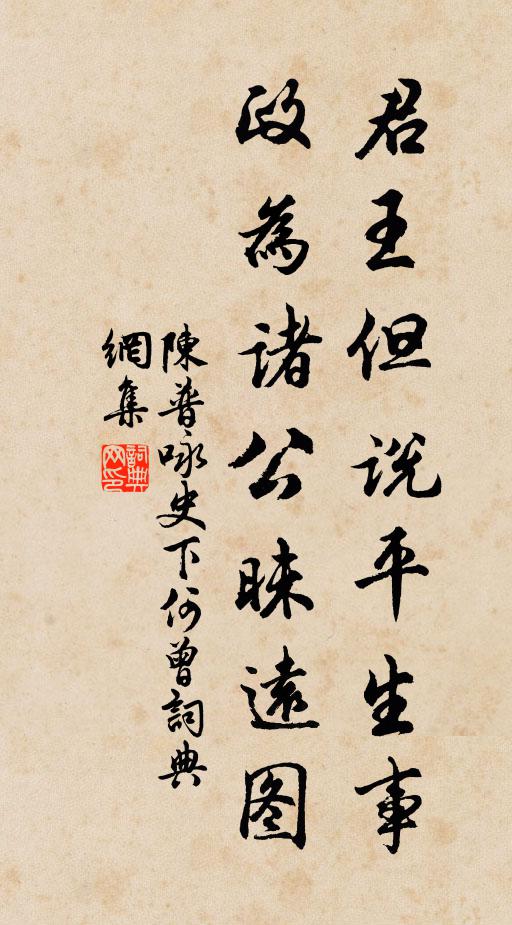 君王但说平生事
政為诸公昧遠图
陳普咏史下何曾詞典
網集
詞典
网印